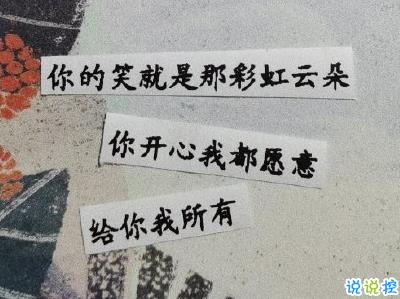 你的笑就是那彩虹云朵
你开心我都愿意
给你我所有
说说控